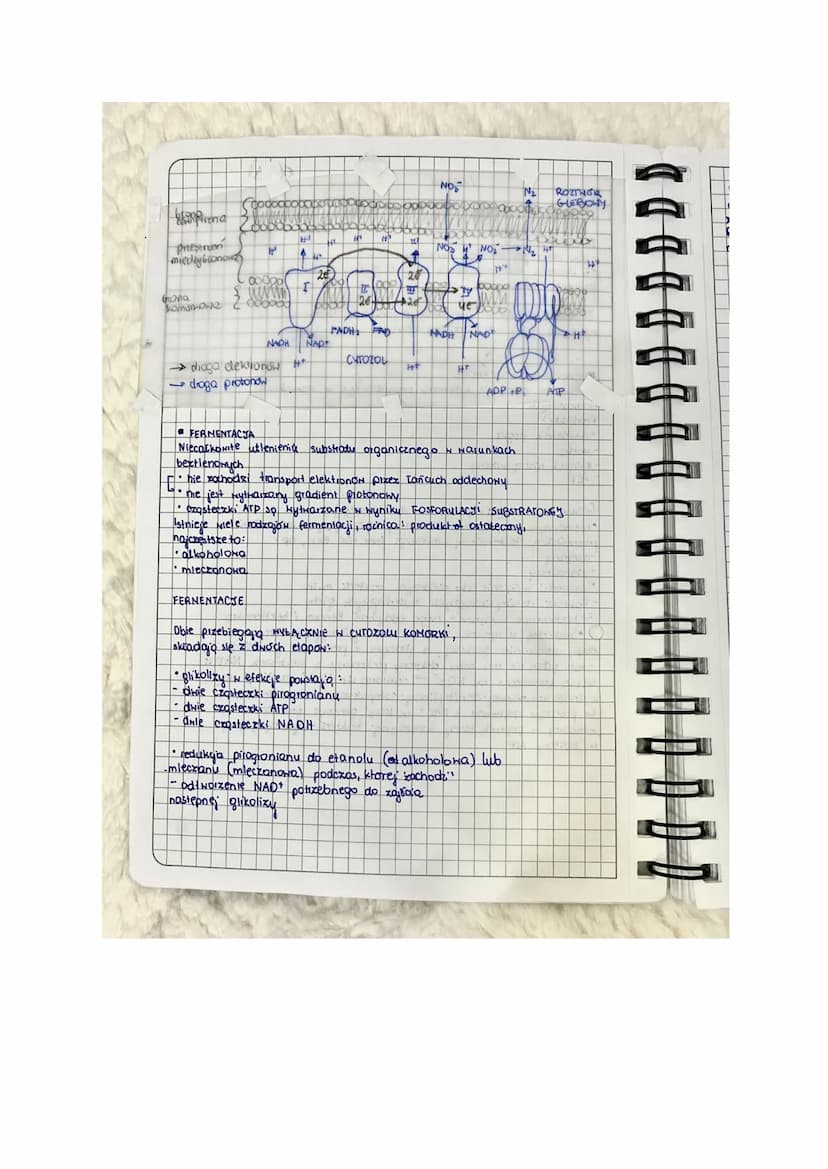 NO₃⁻
N₂
ROZTWÓR
GLEBOWY
błona
zewnętrzna
przestrzeń
międzybłonowa
NO₃⁻ H⁺ NO₂⁻ → N₂ H⁺
H⁺ H⁺ H⁺ H⁺ H⁺ H⁺
I 2e⁻
II 2e⁻
2e⁻ III 2e⁻
IV 4e⁻
błona
komórkowa
NADH NAD⁺
FADH₂ FAD
NADH NAD⁺
H⁺
CYTOZOL
H⁺ H⁺ H⁺
→ droga elektronów
→ droga protonów
ADP + Pi ATP
▪ FERMENTACJA
Niecałkowite utlenienie substratu organicznego w warunkach
beztlenowych
• nie zachodzi transport elektronów przez łańcuch oddechowy
• nie jest wytwarzany gradient protonowy
• cząsteczki ATP są wytwarzane w wyniku FOSFORYLACJI SUBSTRATOWEJ
Istnieje wiele rodzajów fermentacji, różnica: produkt ostateczny,
najczęstsze to:
• alkoholowa
• mleczanowa
FERMENTACJE
Obie przebiegają WYŁĄCZNIE W CYTOZOLU KOMÓRKI,
składają się z dwóch etapów:
• glikolizy: w efekcie powstają:
- dwie cząsteczki pirogronianu
- dwie cząsteczki ATP
- dwie cząsteczki NADH
• redukcja pirogronianu do etanolu (alkoholowa) lub
mleczanu (mleczanowa) podczas, której zachodzi:
- odtworzenie NAD⁺ potrzebnego do zajścia
następnej glikolizy